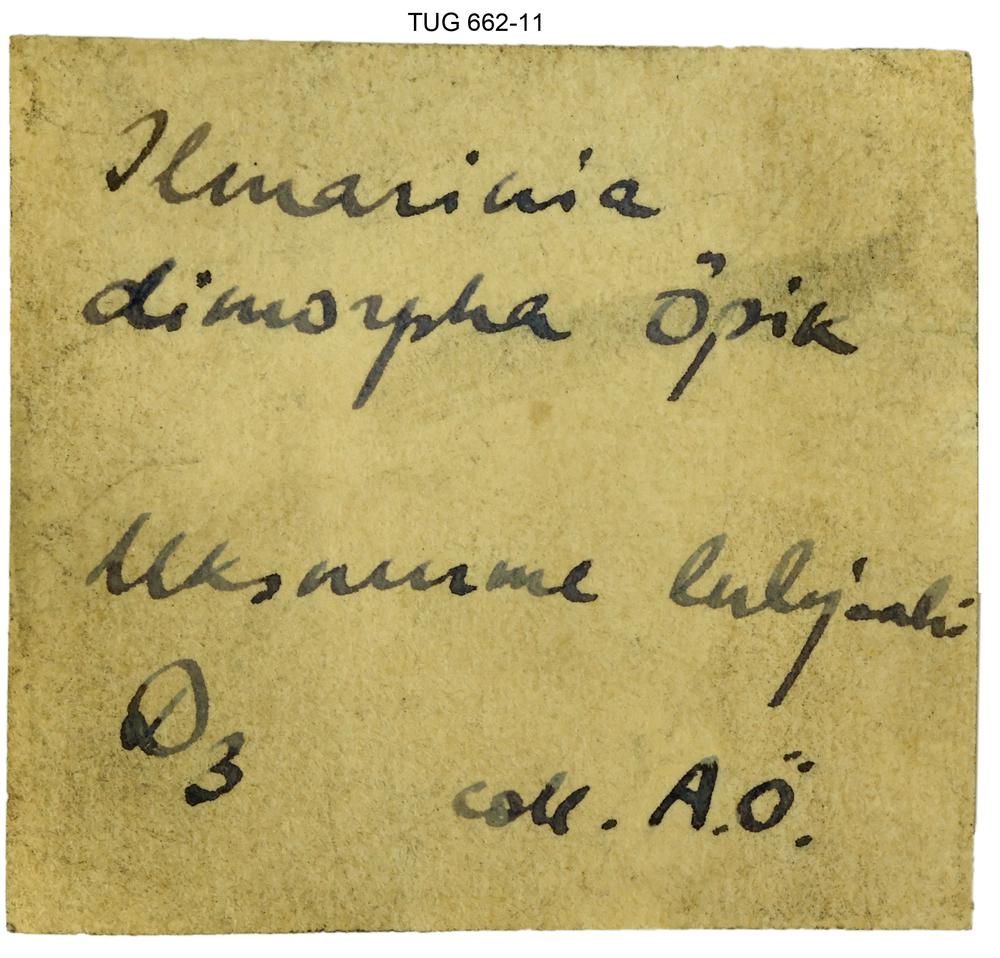 TUG 662-11
Ilmarinia
dimorpha Öpik
Uksnurme lubjaahi
D3
coll. A.Ö.